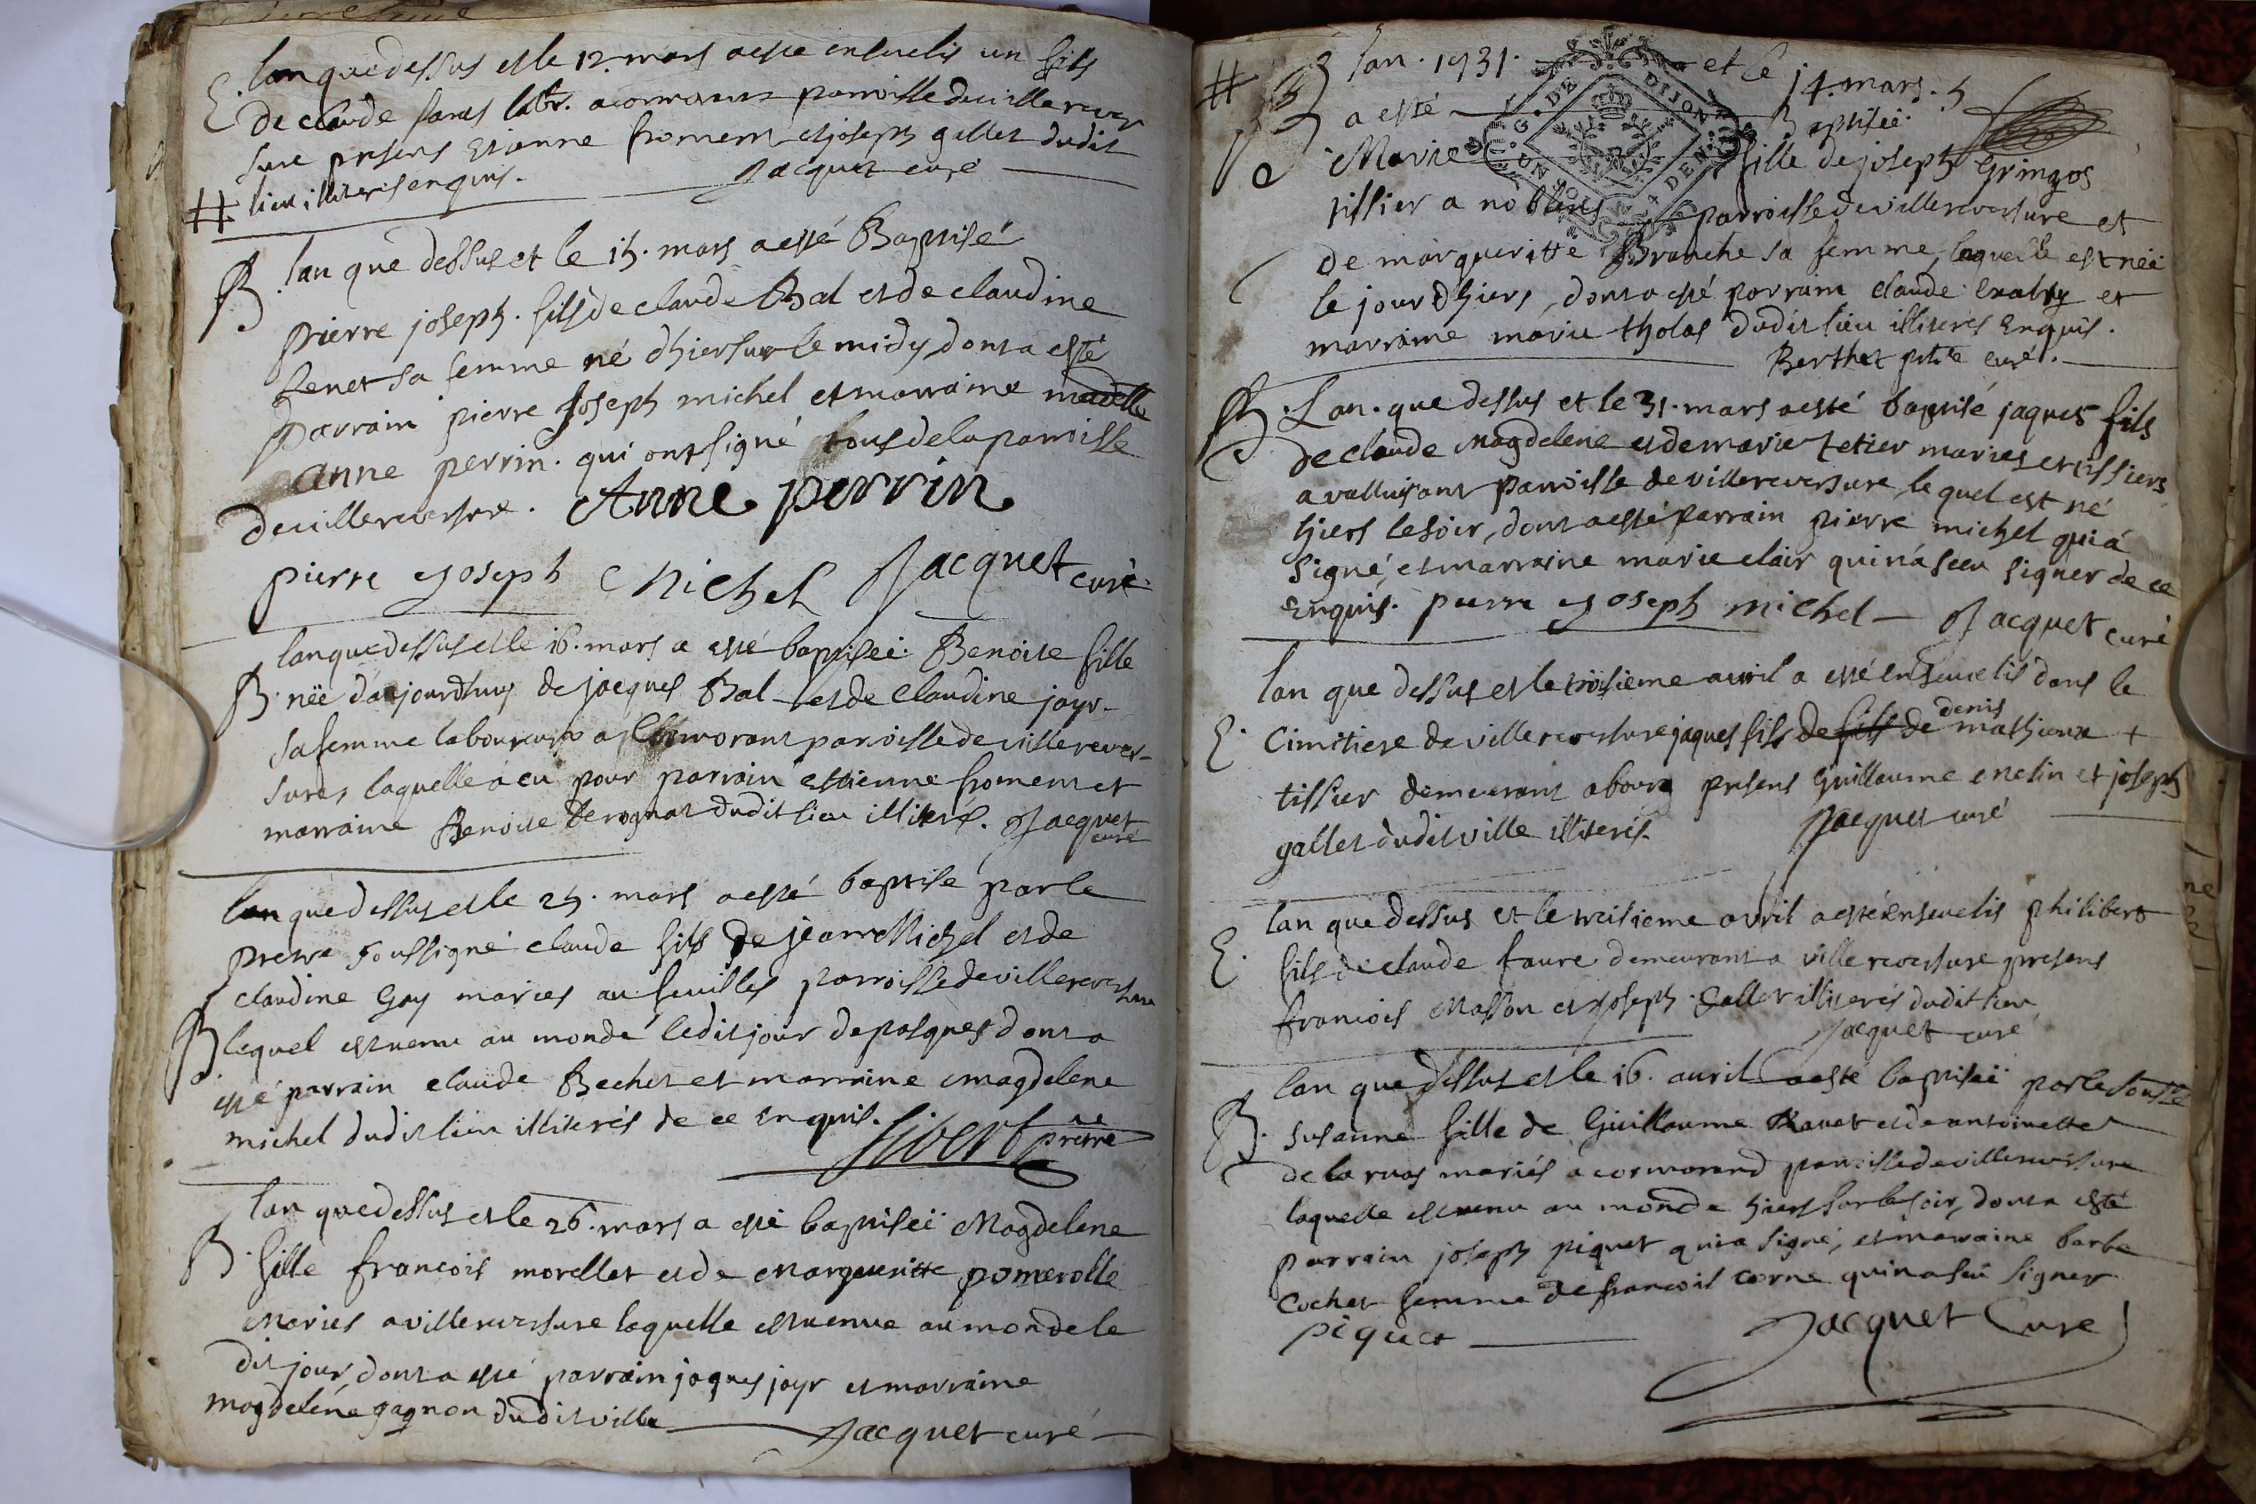 E. lan que dessus et le 12. mars a esté ensevelis un fils
de claude faure labr. a cormorant parroisse de villerever
sure presens Etienne froment et joseph gallet dudit
# lieu illiteres enquis. Jacquet curé
B. lan que dessus et le 15. mars a esté Baptisé
pierre joseph. fils de claude Bal et de claudine
sa femme né d'hier sur le midy, dont a esté
parrain pierre Joseph michel et marraine
anne perrin. qui ont signé tous de la parroisse
de villereversure. Anne perrin
pierre joseph Michel Jacquet curé
lan que dessus et le 16. mars a esté baptiseé Benoite fille
B. née daujourdhuy de jacques Bal et de claudine jayr
sa femme laboureurs a Cormorant parroisse de villerever-
sures laquelle a eu pour parrain estienne froment et
marraine Benoite dudit lieu illiterés. Jacquet
curé
lan que dessus et le 25. mars a esté baptisé par le
pretre soussigné claude fils de jean Michel et de
claudine Gay mariés au feuilles parroisse de villereversure
B lequel est venu au monde ledit jour de pasques dont a
esté parrain claude Bechet et marraine magdelene
michel dudit lieu illiterés de ce enquis. Sibert pretre
lan que dessus et le 26. mars a esté baptiseë Magdelene
B. fille francois morellet et de Margueritte pomerolle
Mariés a villereversure laquelle est venue au monde le
dit jour, dont a esté parrain jaques jayr et marraine
magdelene gagnon dudit ville Jacquet curé
# B lan. 1731. et le 14. mars.
a esté Baptiseé
Marie fille de joseph Gringos
tissier a noblens parroisse de villereversure et
de margueritte Branche sa femme, laquelle est née
le jour d'hiers, dont a esté parrain claude et
marraine marie tholas dudit lieu illiterés Enquis.
Berthet ptre curé.
B. Lan. que dessus et le 31. mars a esté baptisé jaques fils
de claude Magdelene et de marie Tetier mariés et tissiers
a valluisant parroisse de villereversure, lequel est né
hiers le soir, dont a esté parrain pierre michel qui a
signé, et marraine marie clair qui n'a sceu signer de ce
Enquis. pierre joseph michel Jacquet curé
lan que dessus et le troisieme avril a esté ensevelis dans le
E. Cimitiere de villereversure jaques fils de fils de denis mathieux +
tissier demeurant a bourg presens Guillaume Meslin et joseph
gallet dudit ville illiterés. Jacquet curé
lan que dessus et le troisieme avril a esté ensevelis philibert
E. fils de claude faure demeurant a villereversure presens
francois Masson et Joseph Gallet illiterés dudit lieu
Jacquet curé
lan que dessus et le 16. avril a esté baptiseë par le
B. susanne fille de Guillaume Ravet et de antoinette
de la ruas mariés a cormorand parroisse de villereversure
laquelle est venu au monde hiers sur le soir, dont a esté
parrain joseph piquet qui a signé, et marraine barbe
Cochet femme de francois corne qui n'a sceu signer
piquet Jacquet Curé